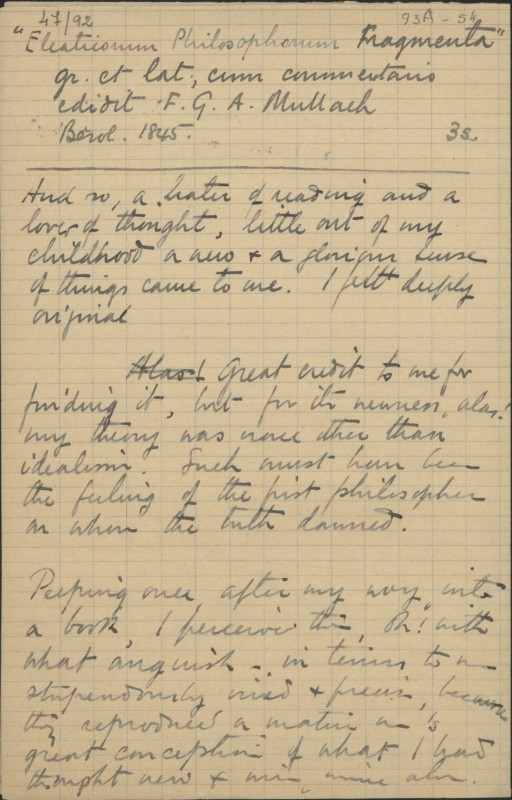 47/92
93A - 54
"Eleaticorum Philosophorum Fragmenta"
gr. et lat., cum commentario
edidit F. G. A. Mullach
Berol. 1845.
3s.
And so, a hater of reading and a
lover of thought, little out of my
childhood a new & a glorious sense
of things came to me. I felt deeply
original
Alas! Great credit to me for
finding it, but for its newness, alas!
my theory was none other than
idealism. Such must have been
the feeling of the first philosopher
on whom the truth dawned.
Peeping once, after my way, into
a book, I perceive this, Oh! with
what anguish - in terms to me
stupendously & precise, because
they reproduced a
great conception of what I had
thought new & mine, mine alone.